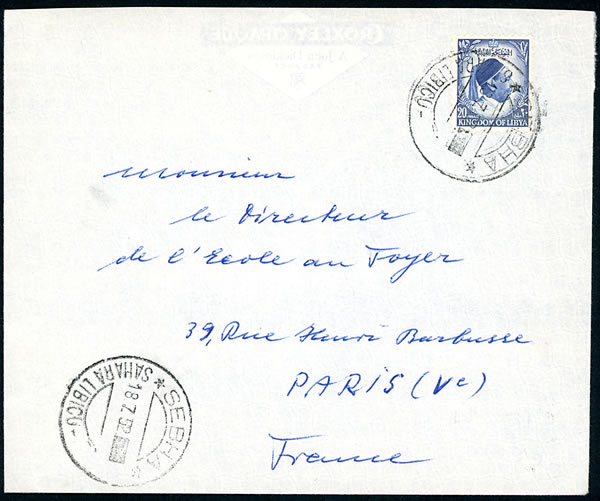 CROXLEY OPAQUE
20
KINGDOM OF LIBYA
SEBHA
* SAHARA LIBICO -
Monsieur
le Directeur
de l'Ecole au Foyer
39, Rue Henri Barbusse
PARIS (Ve)
France
SEBHA
* SAHARA LIBICO -
18.7.52